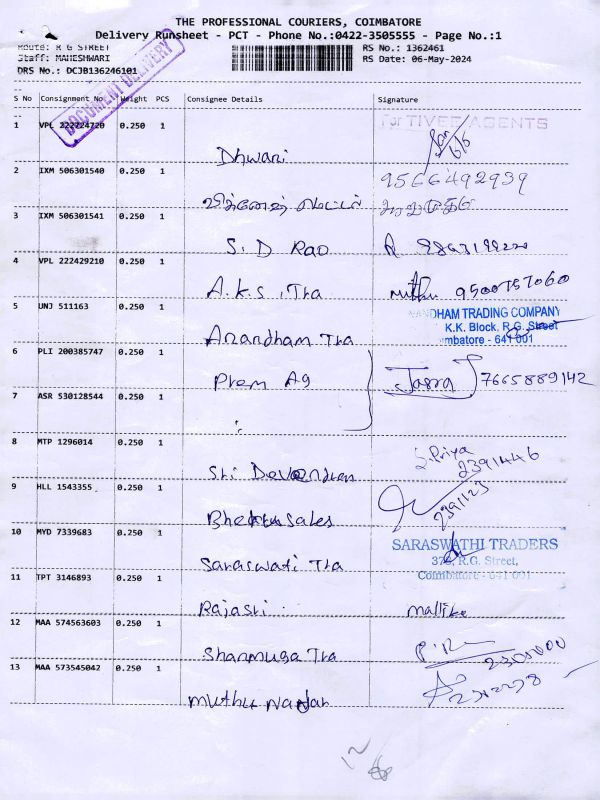 THE PROFESSIONAL COURIERS, COIMBATORE
Delivery Runsheet - PCT - Phone No.:0422-3505555 - Page No.:1
Route: R G STREET
RS No.: 1362461
Staff: MAHESHWARI
RS Date: 06-May-2024
DRS No.: DCJB136246101
DOCUMENT DELIVERY
S No Consignment No. Weight PCS Consignee Details Signature
1 VPL 222724720 0.250 1 Dhwani
For TIVEE AGENTS
6/5
2 IXM 506301540 0.250 1
9566492939
3 IXM 506301541 0.250 1 S. D Rao
4 VPL 222429210 0.250 1 A.K.S. Tra Muthu 9500757060
5 UNJ 511163 0.250 1 Anandham Tra
ANANDHAM TRADING COMPANY
K.K. Block. R.G. Street
Coimbatore - 641 001
6 PLI 200385747 0.250 1 Prem Ag 7665889142
7 ASR 530128544 0.250 1
8 MTP 1296014 0.250 1 Sri Devendran
S. Priya
2391446
9 HLL 1543355 0.250 1 Sales
2391123
10 MYD 7339683 0.250 1 Saraswati Tra
SARASWATHI TRADERS
R.G. Street,
Coimbatore - 641 001
11 TPT 3146893 0.250 1 Rajasri Mallika
12 MAA 574563603 0.250 1 Shanmuga Tra
13 MAA 573545042 0.250 1 Muthu Nadar